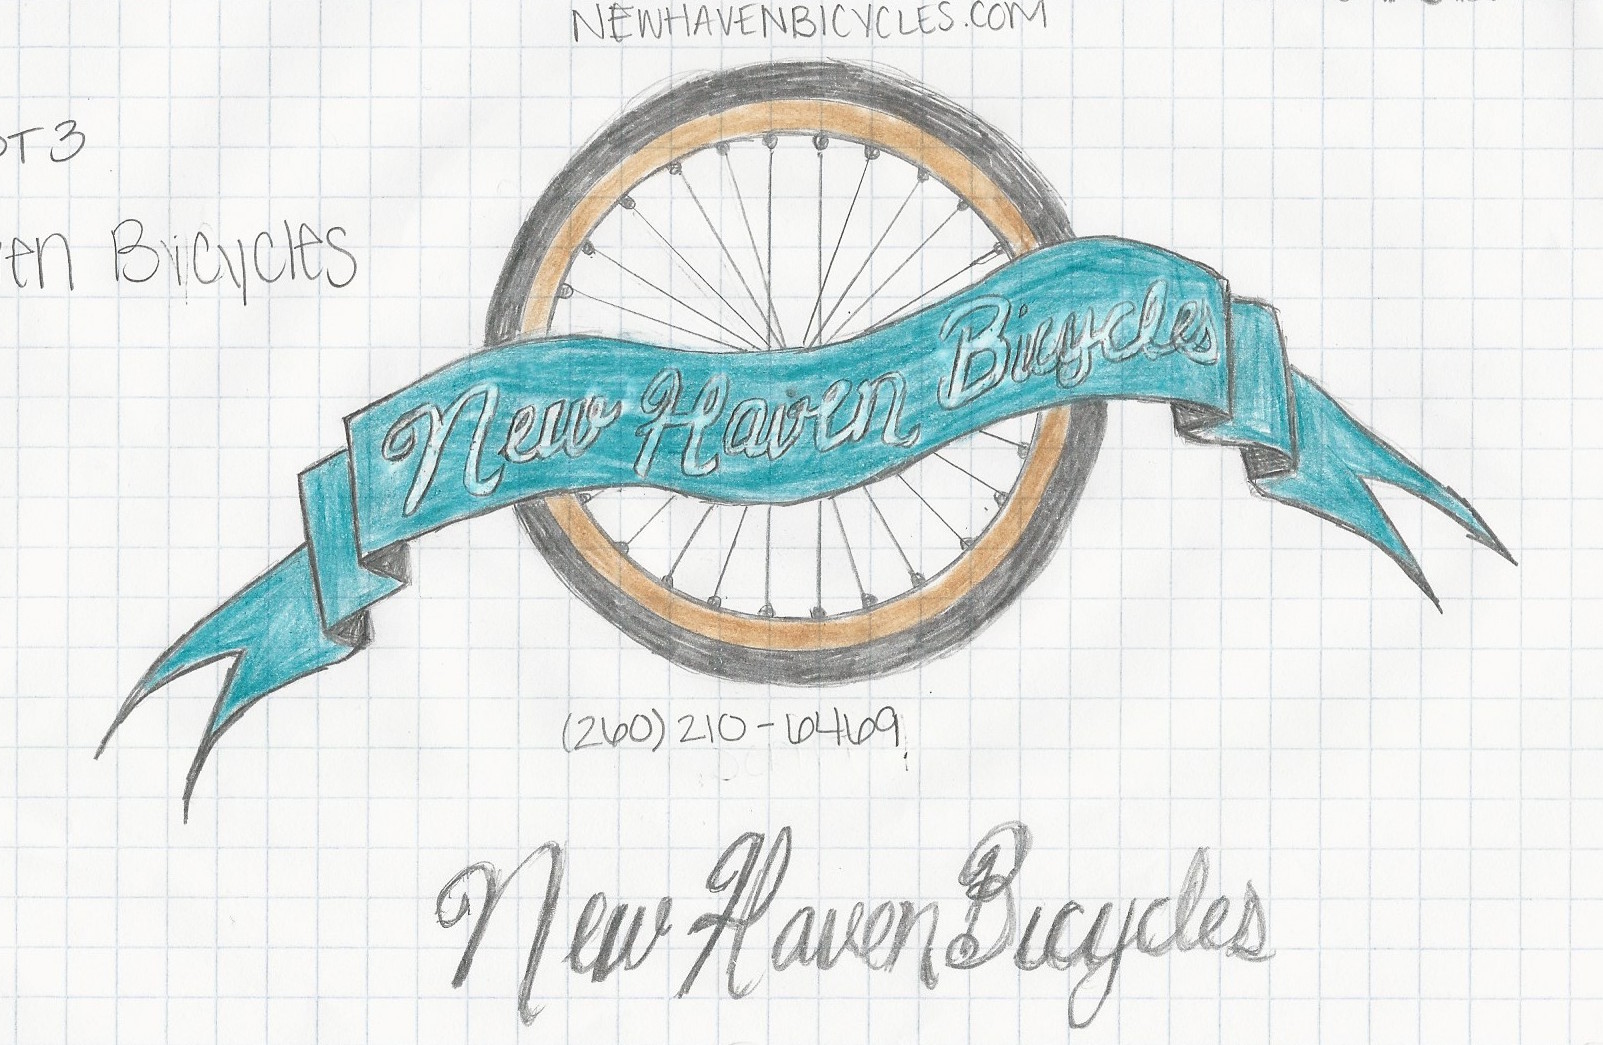 NEWHAVENBICYCLES.COM
OT 3
en Bicycles
New Haven Bicycles
(260) 210-6469
New Haven Bicycles